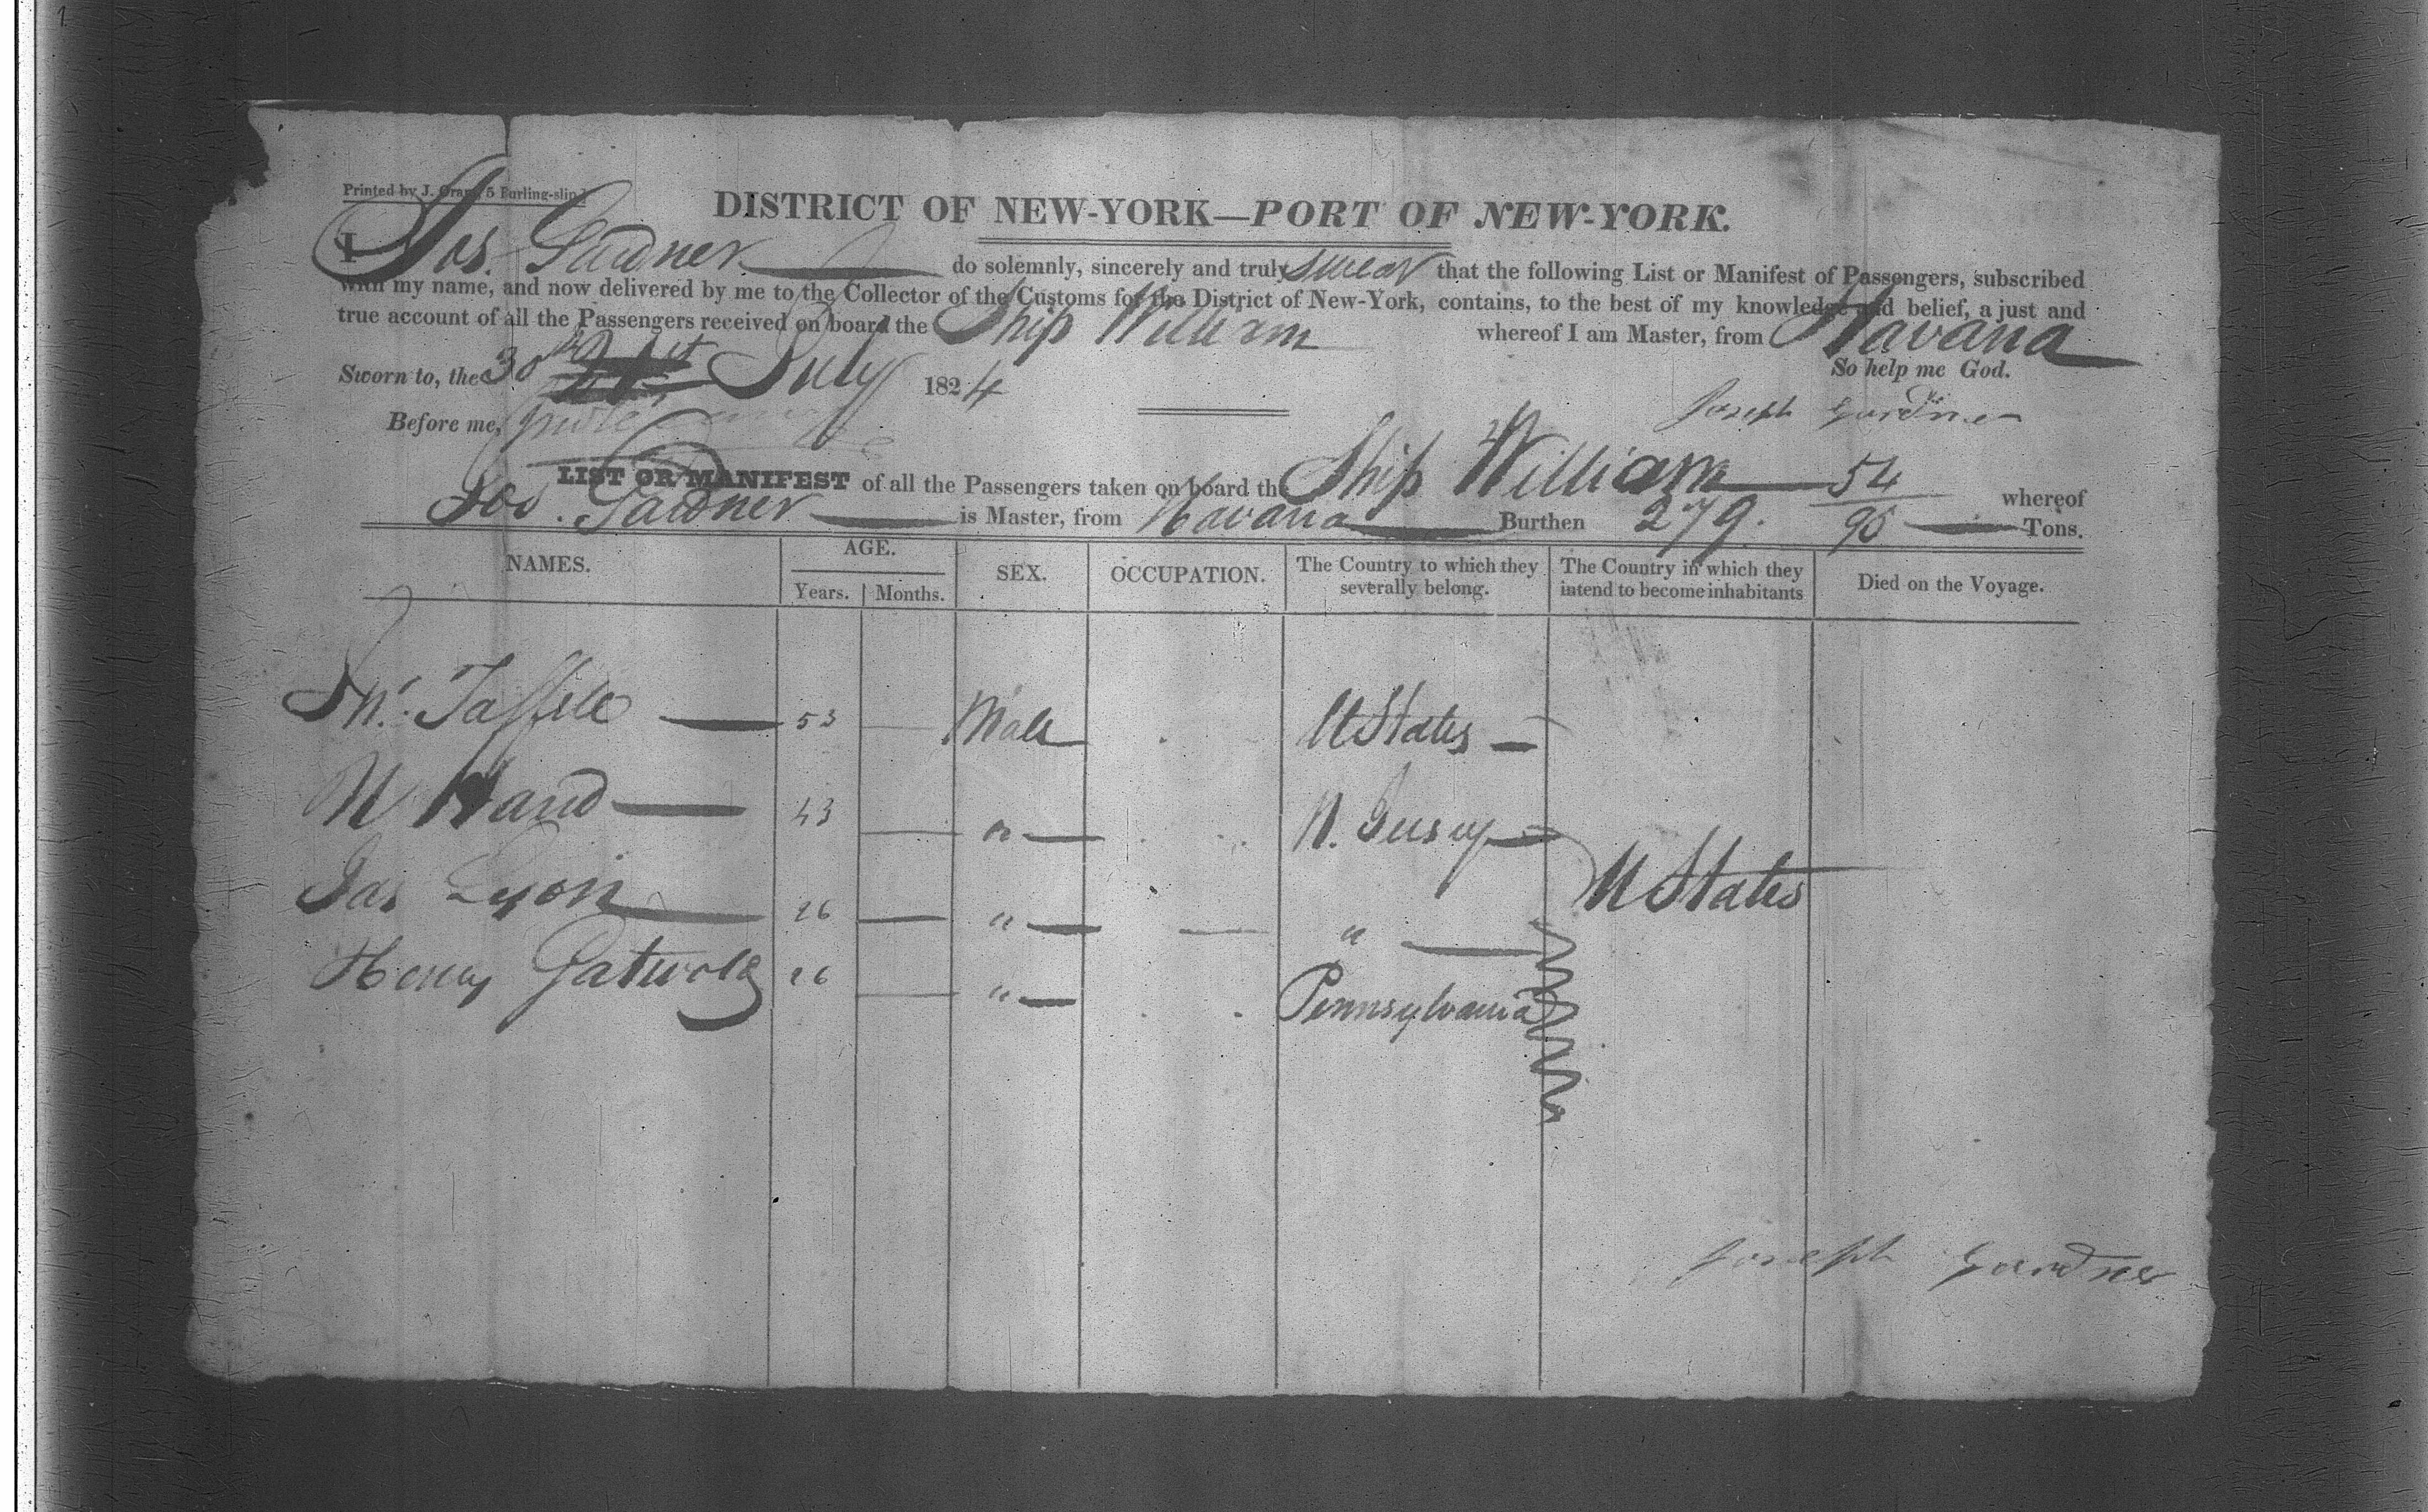 Printed by J. Gray, 5 Burling-slip.
DISTRICT OF NEW-YORK—PORT OF NEW-YORK.
I Jos. Gardner do solemnly, sincerely and truly swear that the following List or Manifest of Passengers, subscribed
with my name, and now delivered by me to the Collector of the Customs for the District of New-York, contains, to the best of my knowledge and belief, a just and
true account of all the Passengers received on board the Ship William whereof I am Master, from Havana
So help me God.
Sworn to, the 30 July 1824
Joseph Gardner
Before me,
LIST OR MANIFEST of all the Passengers taken on board the Ship William whereof
Jos. Gardner is Master, from Havana Burthen 279. 54/95 Tons.
NAMES. AGE. SEX. OCCUPATION. The Country to which they severally belong. The Country in which they intend to become inhabitants Died on the Voyage.
Years. Months.
53 Male U States
Hand 43 N. Jersey
U States
Jas Lyon 26 " "
Henry 26 " Pennsylvania
Joseph Gardner